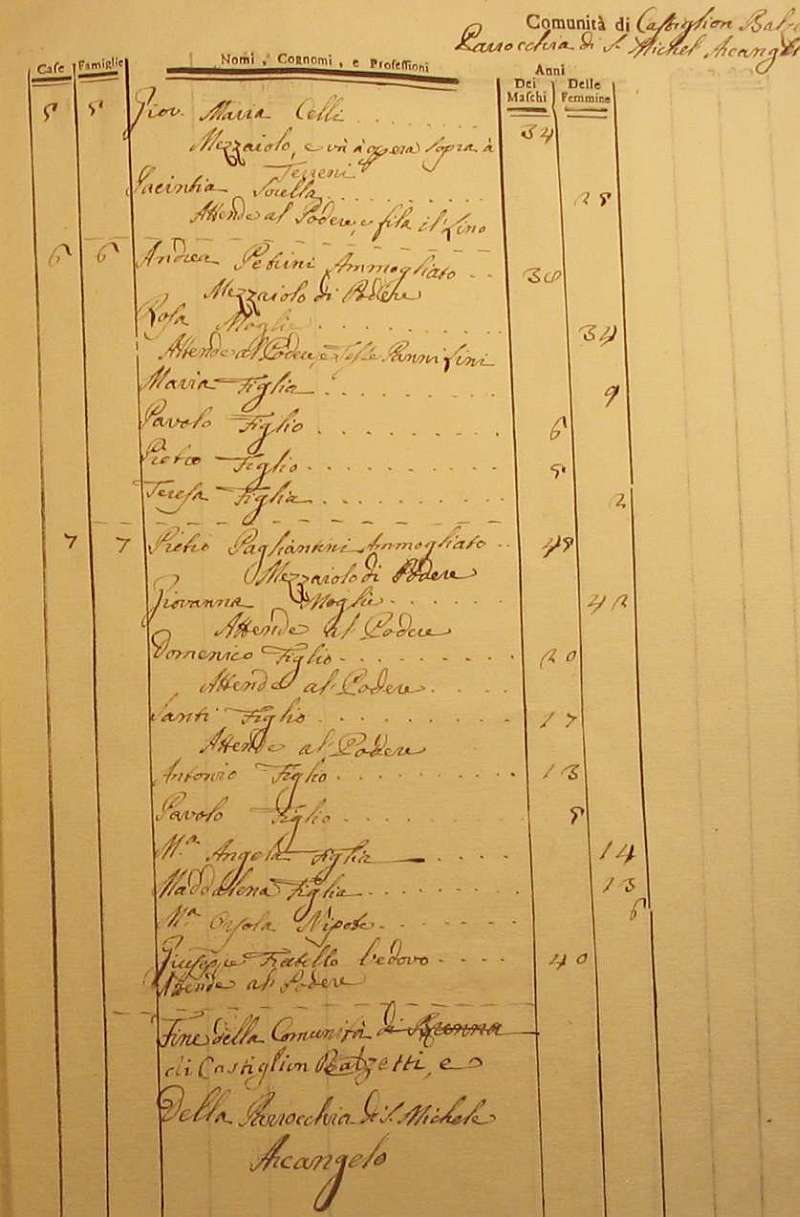 Comunità di Castiglion Bal
Parrocchia di S. Michel Arcangelo
Case Famiglie Nomi, Cognomi, e Professioni Anni
Dei Maschi Delle Femmine
5 5 Giov. Maria Celli 34
Mezzaiolo, e và à opera sopra à
Terreni
Jacintia Sorella 25
Attende al Podere, e fila il Lino
6 6 Andrea Petrini Ammogliato 36
Mezzaiolo di Podere
Rosa Moglie 34
Attende al Podere, e Tesse Panni Lini
Maria Figlia 9
Pavolo Figlio 6
Pietro Figlio 5
Teresa Figlia 2
7 7 Pietro Pagliantini Ammogliato 45
Mezzaiolo di Podere
Giovanna Moglie 42
Attende al Podere
Domenico Figlio 20
Attende al Podere
Santi Figlio 17
Attende al Podere
Antonio Figlio 13
Pavolo Figlio 5
M.a Angela Figlia 14
Maddalena Figlia 13
M.a Orsola Nipote 6
Giuseppe Fratello Vedovo 40
Attende al Podere
Fine della Comunità di
di Castiglion Balzetti, e
Della Parrocchia di S. Michele
Arcangelo